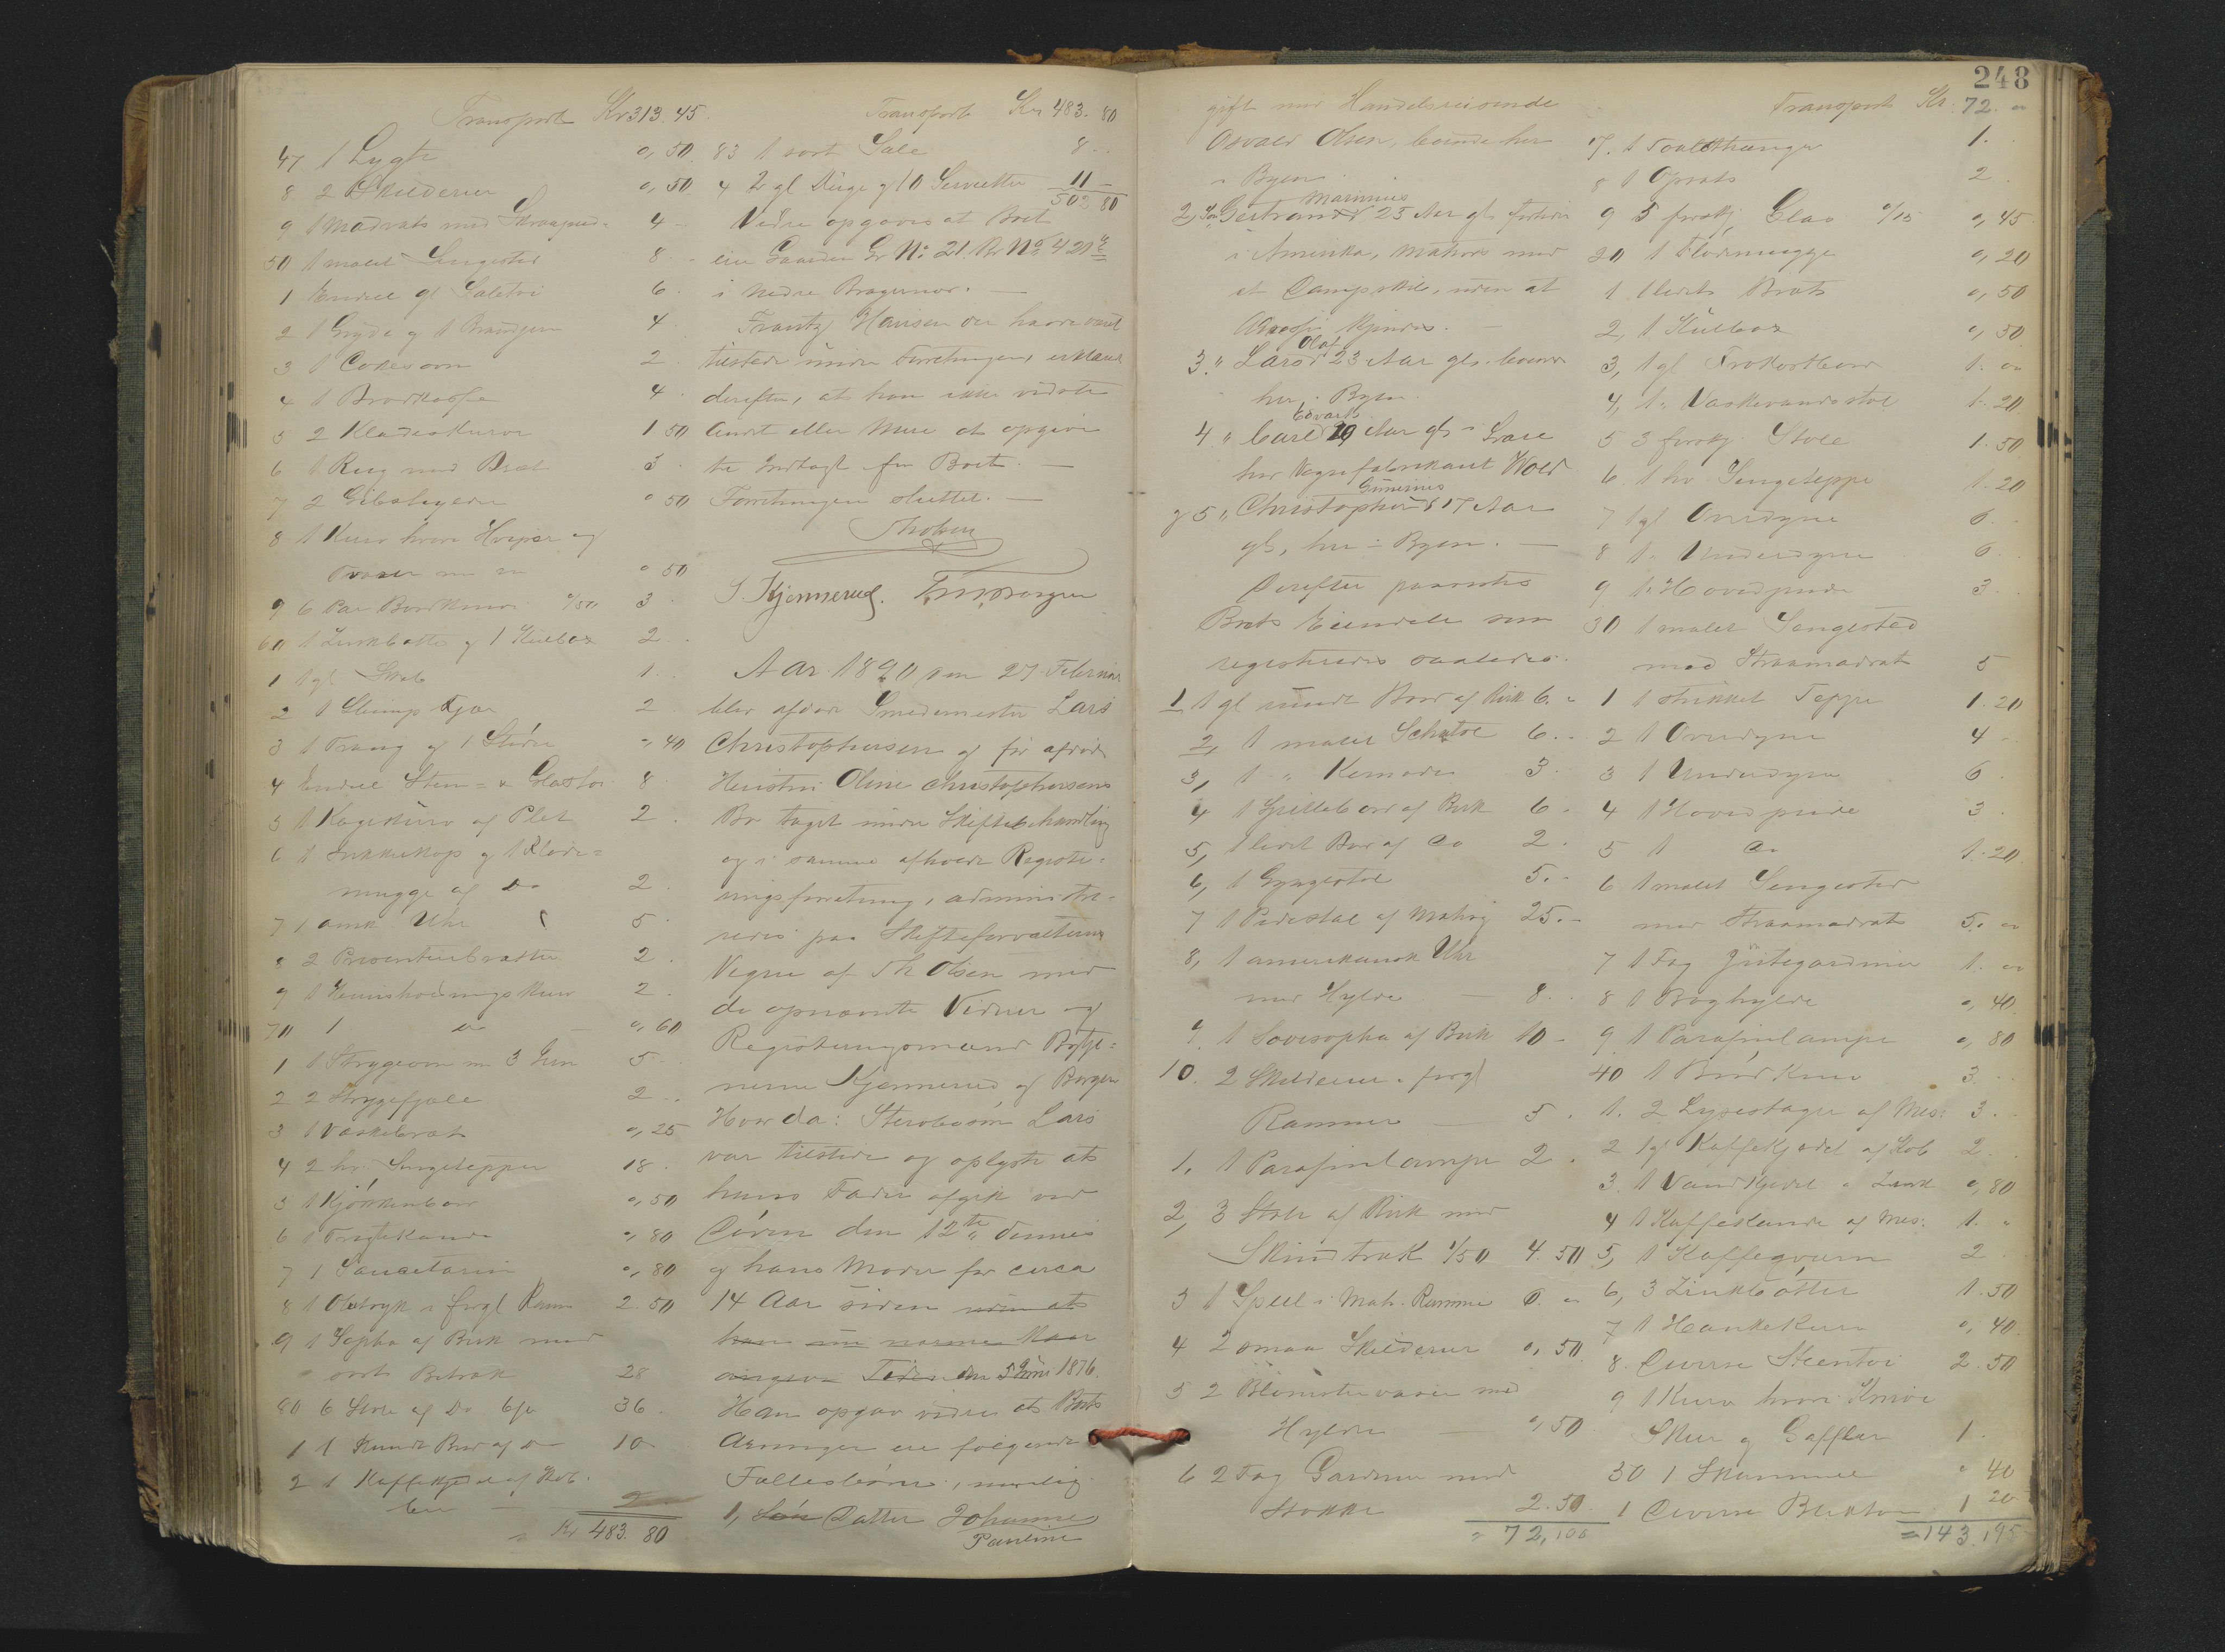 Transport Kr 313.45.
47 1 Lygte 0,50
8 2 Skilderier 0,50
9 1 Madrats med 4 -
50 1 malet Sengested 8 -
1 Endeel gl Saletøi 6.
2 1 Gryde og 1 4.
3 1 Cokesovn 2.
4 1 4.
5 2 Klædeskurve 1 50
6 1 med Bræt 3.
7 2 0 50
8 1 Kurv hvori og
0 50
9 6 Par 0/50 3.
60 1 Zinkbøtte og 1 Kulbox 2.
1 1 gl Skab 1.
2 1 2.
3 1 og 1 0,40
4 Endeel Steen- & Glastøi 8
5 1 Kagekurv af Plet 2.
6 1 Sukkerkop og 1 Fløde=
mugge af Do 2.
7 1 amk Uhr 5.
8 2 Presenteerbrætter 2.
9 1 Huusholdningskurv 2.
70 1 Do 0,60
1 1 Strygeovn m 3 5.
2 2 Strygefjæle 2.
3 1 Vaskebræt 0,25
4 2 hv. Sengetepper 18.
5 1 Kjøkkenbord 0,50
6 1 0,80
7 1 0,80
8 1 Olietryk i forgl Ramme 2.50
9 1 Sopha af Birk med
sort Betræk 28
80 6 Stole af Do 6/0 36.
1 1 Rundt Bord af Do 10
2 1 Kaffekjedel af Kob-
ber 2
= Kr 483.80
Transport Kr 483.80
83 1 sort Sale 8 -
4 2 gl Duge og 10 Servietter 11 -
502 80
Videre opgaves at Boet
eier Gaarden Gr No: 21. Br No 420
i Nedre Bragernæs. —
Frantz Hansen der havde været
tilstede under Forretningen, erklærede
derefter, at han ikke vidste
Andet eller Mere at opgive
til Indtægt for Boet. —
Forretningen sluttet. —
S. Kjennerud.
Aar 1890 den 27 Februar
blev afdøde Smedemester Lars
Christophersen og før afdøde
Hustru Oline Christophersens
Bo taget under Skiftebehandling
og i samme afholdt Registe-
ringsforretning, administre-
redes paa Skifteforvalterens
Vegne af Th Olsen med
de opnævnte Vidner og
Registeringsmænd Betje-
nterne Kjennerud og Borgen
Hvorda: Sterbosøn Lars
var tilstede og oplyste at
hans Fader afgik ved
Døden den 12te dennes
og hans Moder for circa
14 Aar siden uden at
han nærmere kan
angive Tiden den 5 Juni 1876.
Han opgav videre at Boets
Arvinger ere følgende
Fællesbørn, nemlig
1, Søn Datter Johanne
Pauline
248
gift med Handelsreisende
Osvald Olsen, boende her
i Byen.
Marinius
2, Søn Gertrand 25 Aar gl. fortiden
i Amerika, Matros med
et Dampskib, uden at
Adressen kjendes. —
Olaf
3. " Lars 23 Aar gl. boende
her i Byen.
Edvart
4 " Carl 19 Aar gl i Lære
hos Vognfabrikant Wold
Gunerius
og 5 " Christopher 17 Aar
gl, her i Byen. —
Derefter paavistes
Boets Eiendele som
registreredes saaledes:
1 1 gl rundt Bord af Birk 6. -
2, 1 malet Schatol 6. -
3, 1 " Komode 3.
4 1 Spillebord af Birk 6 -
5, 1 lidet Bord af Do 2.
6, 1 Gyngestol 5. -
7 1 Pidestal af Mahog 25. -
8, 1 amerikansk Uhr
med Hylde — 8.
9. 1 Sovesopha af Birk 10 -
10. 2 Skilderier i forgl
Rammer — 5.
1. 1 Parafinlampe 2.
2, 3 Stole af Birk med
Skindtræk 1/50 4.50
3 1 Speil i Mah. Ramme 6. -
4 2 smaa Skilderier 0,50
5 2 Blomstervaser med
Hylde — 0,50
6 2 Fag Gardiner med
Stokke 2.50
= 72,100
Transport Kr. 72. -
7. 1 1.
8 1 Opsats 2.
9 3 forskj. Glas 0/15 0,45
20 1 Flødemugge 0,20
1. 1 lidet Bræt 0,50
2, 1 Kulbox 0,50
3, 1 gl Frokostbord 1. -
4, 1 Vaskevandsstol 1.20
5 3 forskj. Stole 1.50
6 1 hv Sengeteppe 1.20
7 1 gl Overdyne 6.
8 1 " Underdyne 6.
9 1 " Hovedpude 3.
30 1 malet Sengested
med Straamadrat 5
1 1 stukket Teppe 1.20
2 1 Overdyne 4 -
3 1 Underdyne 6
4 1 Hovedpude 3.
5 1 Do 1.20
6 1 malet Sengested
med Straamadrat 5. -
7 1 Fag Jütegardiner 1. -
8 1 Boghylde 0,40
9 1 Parafinlampe 0,80
40 1 Brødkurv 3.
1. 2 Lysestager af Mes: 3.
2 1 gl Kaffekjedel af Kob 2.
3. 1 Vandkjedel a Zink 0,80
4 1 Kaffekande af Mes: 1. -
5, 1 Kaffeqværn 2
6, 3 Zinkbøtter 1.50
7 1 Hankekurv 0,40.
8. Diverse Steentøi 2.50
9 1 Kurv hvori Knive
Skeer og Gafler 1.
50 1 Skammel 0 40
1 Diverse Blektøi 1 20
= 143.195